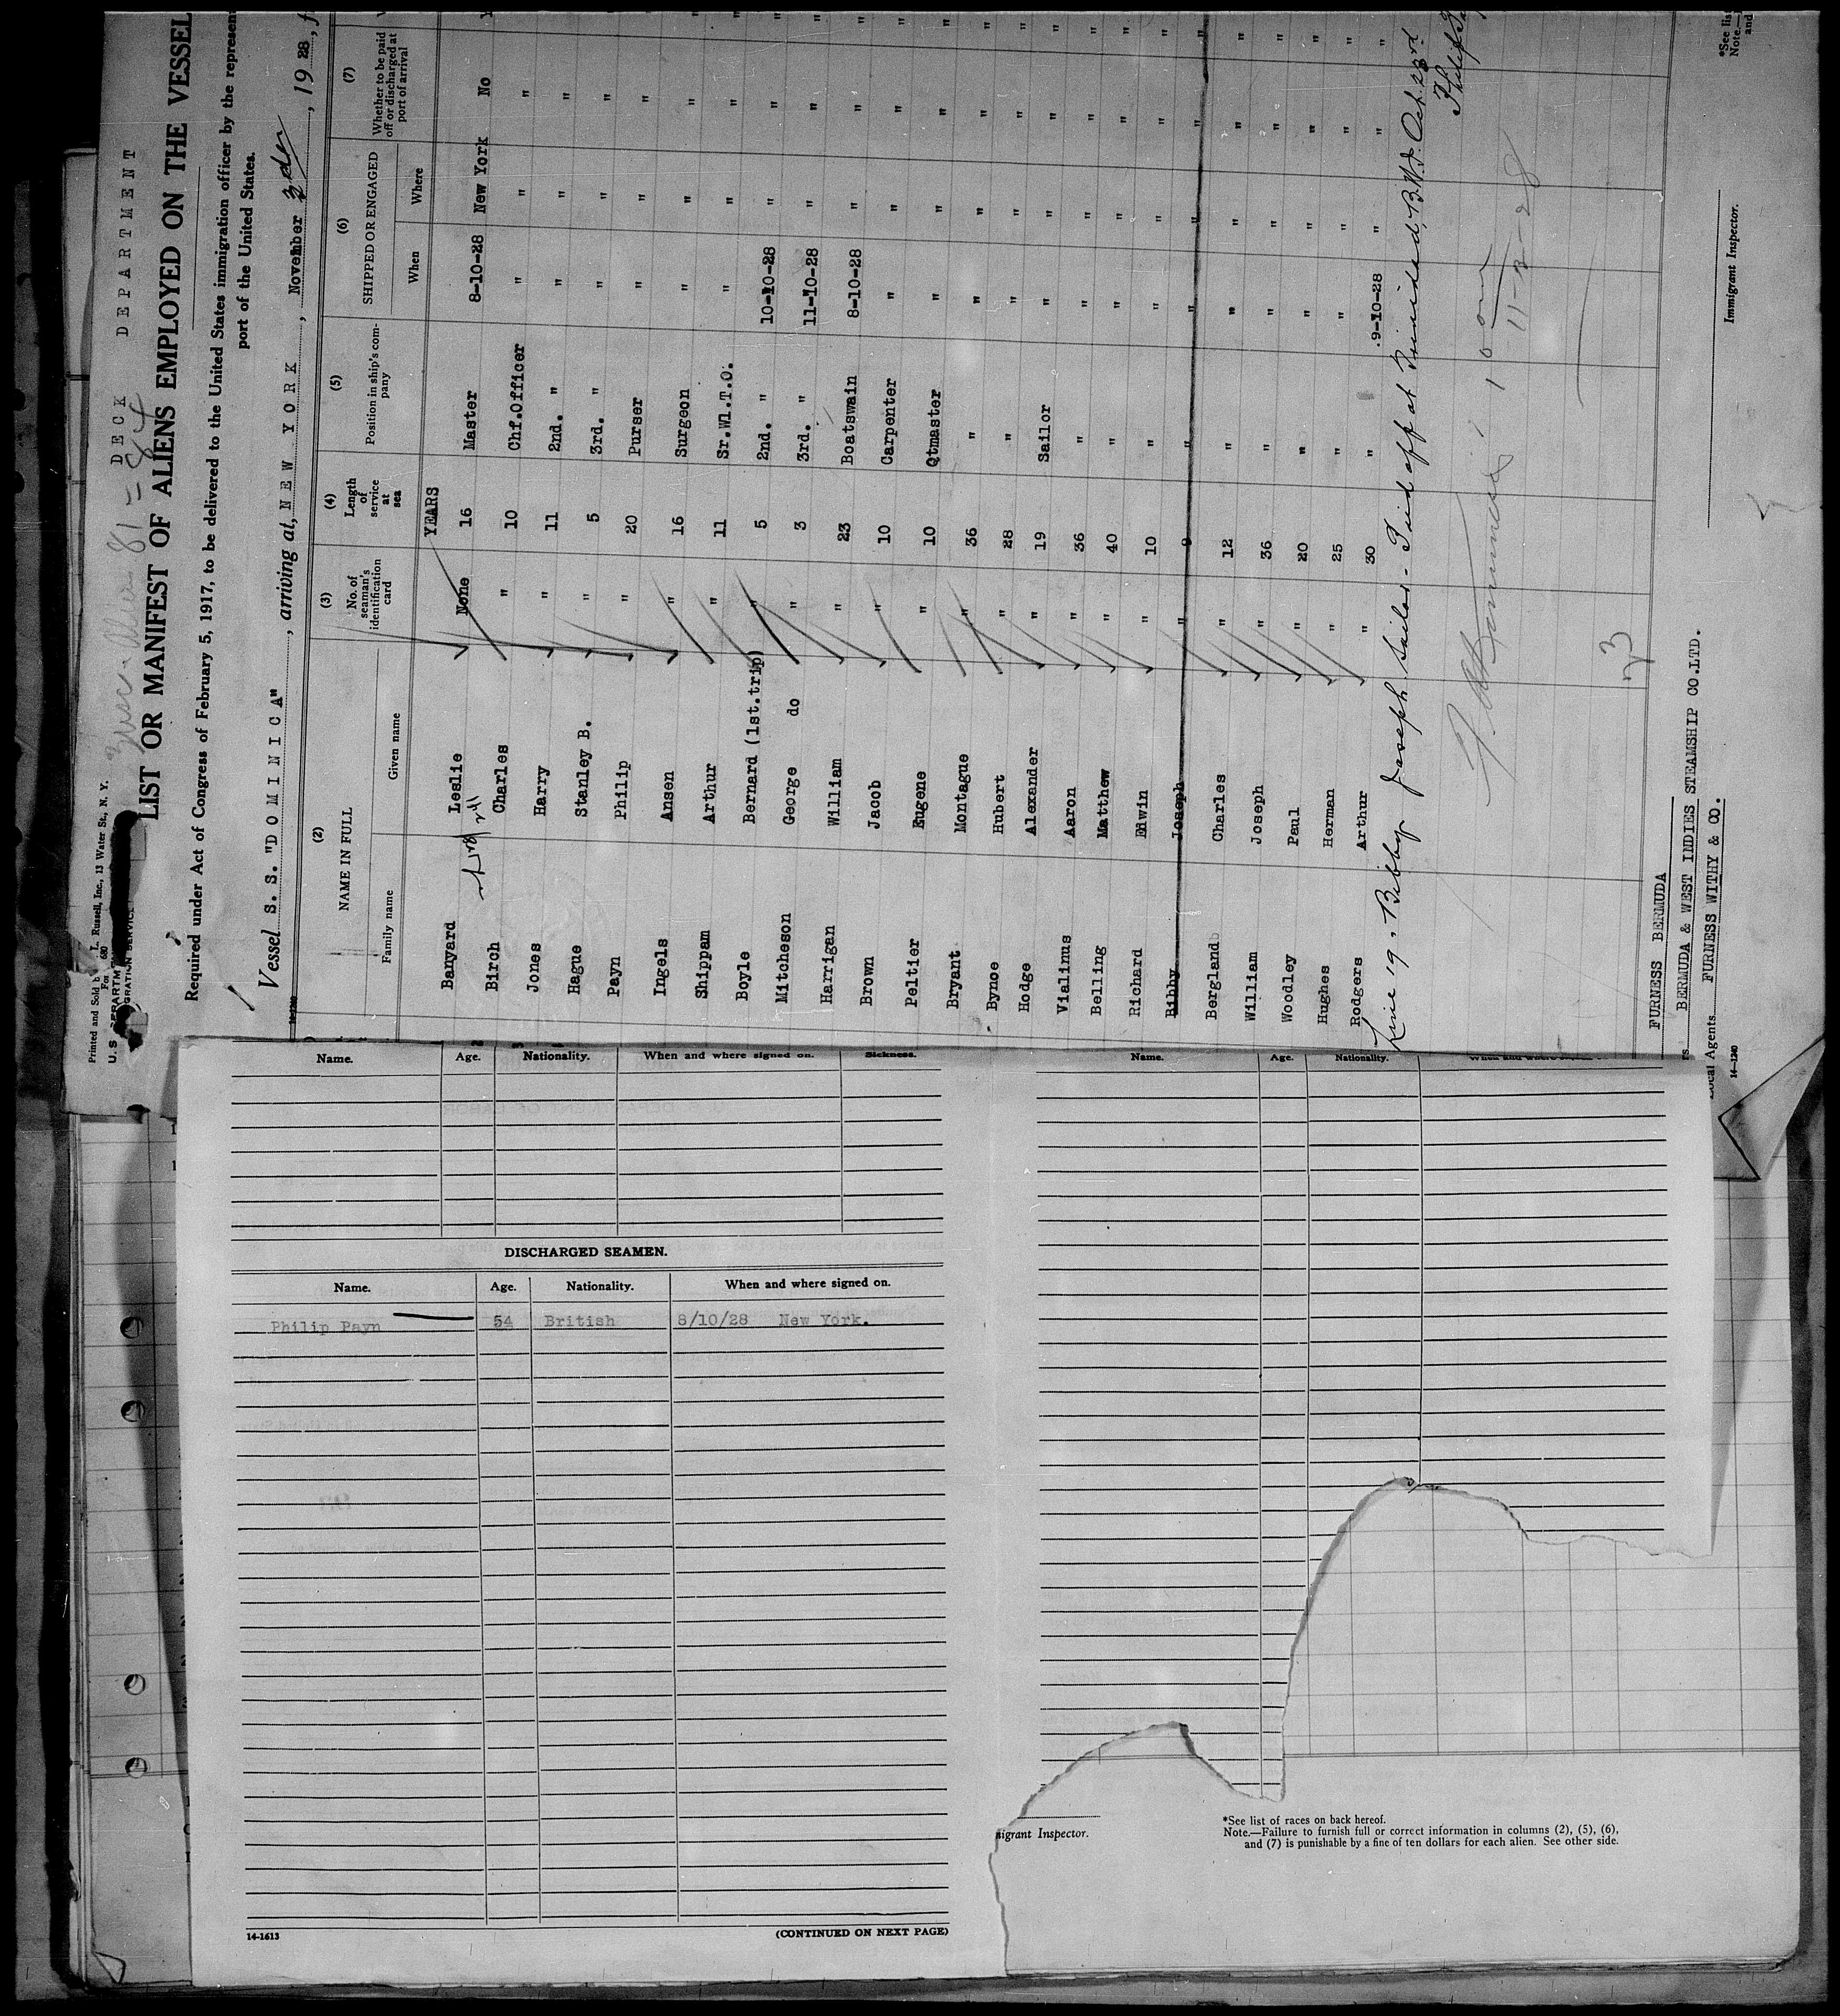 Printed and Sold by L. Russell, Inc., 13 Water St., N. Y.
Form 680
U. S. DEPARTM
GRATION SERVICE
DECK DEPARTMENT
81 - 84
LIST OR MANIFEST OF ALIENS EMPLOYED ON THE VESSEL
Required under Act of Congress of February 5, 1917, to be delivered to the United States immigration officer by the represen
port of the United States.
Vessel S. S. "DOMINICA", arriving at, NEW YORK, November, 1928, f
14-1240
(2) (3) (4) (5) (6) (7)
NAME IN FULL No. of seaman's identification card Length of service at sea Position in ship's company SHIPPED OR ENGAGED Whether to be paid off or discharged at port of arrival
Family name Given name When Where
YEARS
Banyard Leslie None 16 Master 8-10-28 New York No
Birch Charles " 10 Chf.Officer " " "
Jones Harry " 11 2nd. " " " "
Hague Stanley B. " 5 3rd. " " " "
Payn Philip " 20 Purser " " "
Ingels Ansen " 16 Surgeon " " "
Shippam Arthur " 11 Sr.Wl.T.O. " " "
Boyle Bernard (1st.trip) " 5 2nd. " 10-10-28 " "
Mitcheson George do " 3 3rd. " 11-10-28 " "
Harrigan William " 23 Boatswain 8-10-28 " "
Brown Jacob " 10 Carpenter " " "
Peltier Eugene " 10 Qtmaster " " "
Bryant Montague " 36 " " " "
Bynoe Hubert " 28 " " " "
Hodge Alexander " 19 Sailor " " "
Vialinus Aaron " 36 " " " "
Belling Matthew " 40 " " " "
Richard Edwin " 10 " " " "
Bibby Joseph " 9 " " " "
Bergland Charles " 12 " " " "
William Joseph " 36 " " " "
Woodley Paul " 20 " " " "
Hughes Herman " 25 " " " "
Rodgers Arthur " 30 " 9-10-28 " "
Line 19, Bibby Joseph Sailor - Paid off at Trinidad, B.W.I. Oct. 23rd
Philip
11-3-28
23
FURNESS BERMUDA
rs BERMUDA & WEST INDIES STEAMSHIP CO.LTD.
Local Agents FURNESS WITHY & CO.
14-1240
Immigrant Inspector.
*See lis
Note.—
and
Name. Age. Nationality. When and where signed on. Sickness.
DISCHARGED SEAMEN.
Name. Age. Nationality. When and where signed on.
Philip Payn 54 British 8/10/28 New York.
14-1613 (CONTINUED ON NEXT PAGE)
Name. Age. Nationality. When and where signed on.
migrant Inspector.
*See list of races on back hereof.
Note.—Failure to furnish full or correct information in columns (2), (5), (6),
and (7) is punishable by a fine of ten dollars for each alien. See other side.